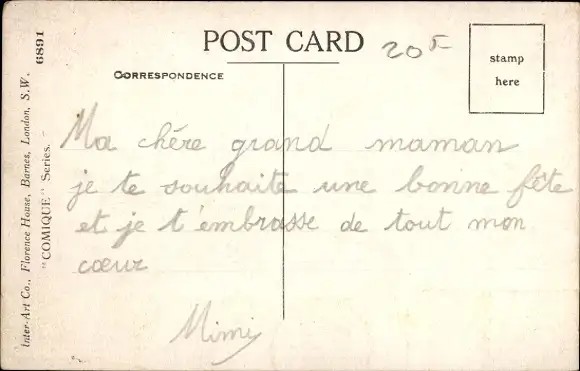 POST CARD
20F
stamp
here
CORRESPONDENCE
Ma chére grand maman
je te souhaite une bonne fête
et je t'embrasse de tout mon
cœur
Mimi
Inter-Art Co., Florence House, Barnes, London, S.W.
"COMIQUE" Series. 6891